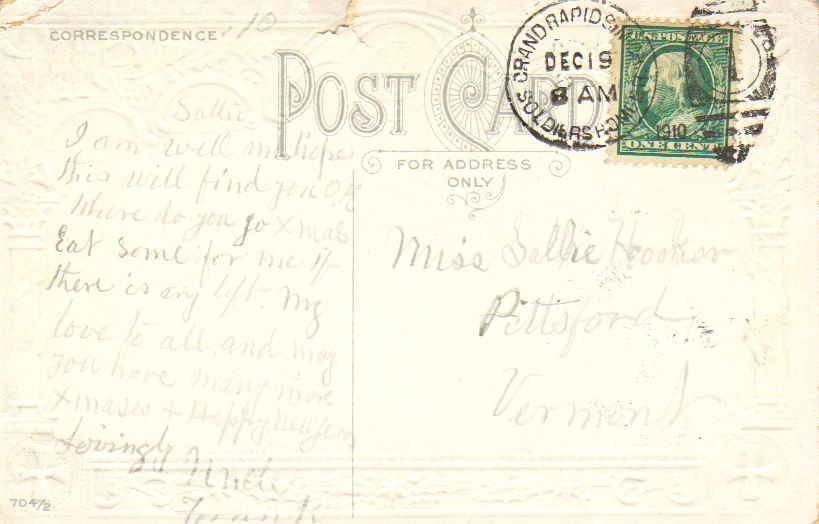 CORRESPONDENCE
10
POST CARD
FOR ADDRESS
ONLY
GRAND RAPIDS
DEC 19
8 AM
1910
SOLDIERS HOME
U.S. POSTAGE
Sallie.
I am well hope
this will find you OK
Where do you go Xmas
Eat some for me if
there is any left. My
love to all, and may
you have many more
Xmases + Happy New Years
Lovingly
Uncle
Frank
Miss Sallie Hooker
Pittsford
Vermont
704/2